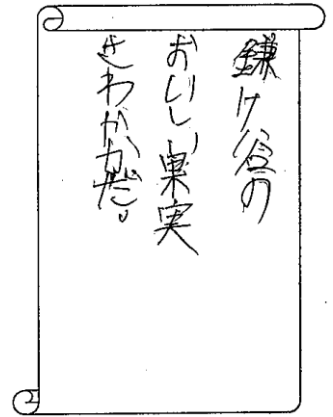 鎌ケ谷の
おいしい果実
さわやかだ。